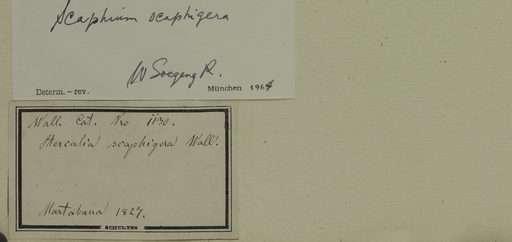 Scaphium scaphigera
W Soegeng R.
Determ.–rev. München 1964
Wall. Cat. Nro 1130.
Sterculia scaphigera Wall.
Martabana 1827.
SCHULTES